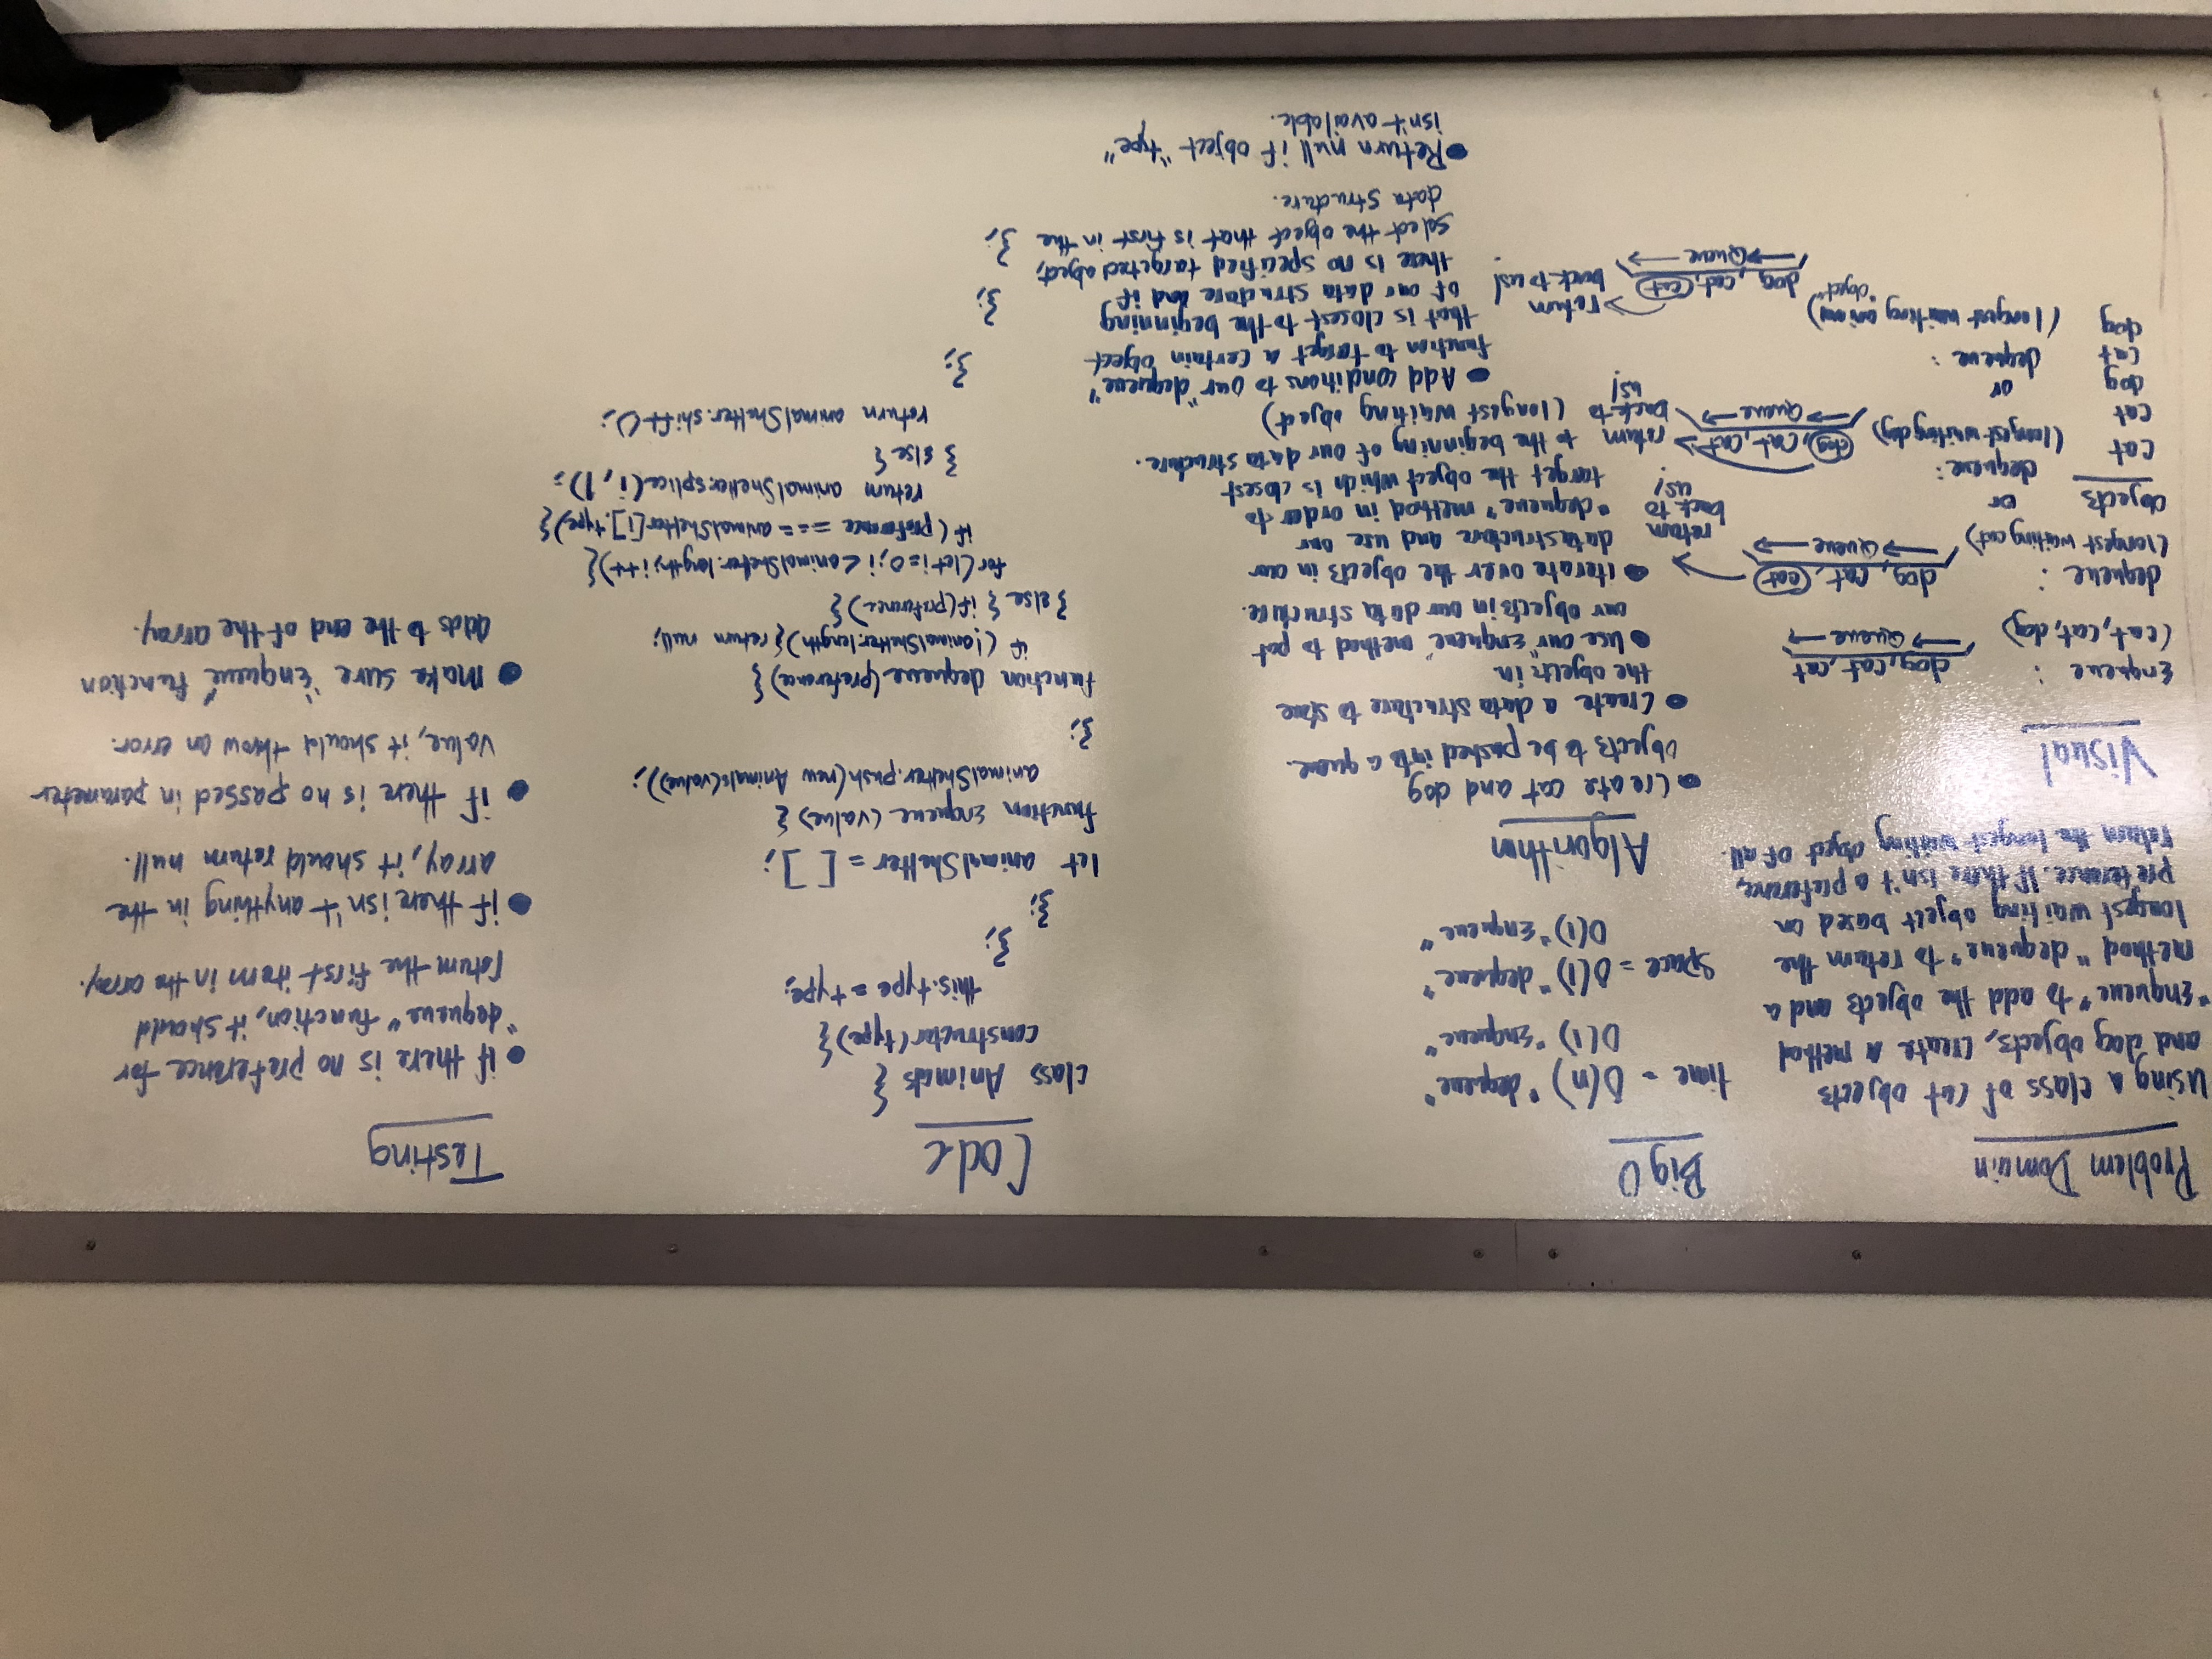 Problem Domain
Using a class of cat objects
and dog objects, create a method
"Enqueue" to add the objects and a
method "dequeue" to return the
longest waiting object based on
preference. If there isn't a preference,
return the longest waiting object of all.
Visual
Enqueue :
(cat, cat, dog)
dog, cat, cat
→ Queue →
dequeue :
(longest waiting cat)
dog, cat, cat
→ Queue →
return
back to
us!
objects
cat
cat
dog
cat
dog
or
dequeue:
(longest waiting dog)
dog, cat, cat
→ Queue →
return
back to
us!
or
dequeue :
(longest waiting animal)
"object"
dog, cat, cat
→ Queue →
return
back to us!
Big O
time = O(n) "dequeue"
O(1) "Enqueue"
space = O(1) "dequeue"
O(1) "Enqueue"
Algorithm
• Create cat and dog
objects to be pushed into a queue.
• Create a data structure to store
the objects in.
• Use our "Enqueue" method to put
our objects in our data structure.
• iterate over the objects in our
data structure and use our
"dequeue" method in order to
target the object which is closest
to the beginning of our data structure.
(longest waiting object)
• Add conditions to our "dequeue"
function to target a certain object
that is closest to the beginning
of our data structure and if
there is no specified targeted object,
select the object that is first in the
data structure.
• Return null if object "type"
isn't available.
Code
class Animals {
constructor(type){
this.type = type;
};
};
let animalShelter = [ ];
function Enqueue (value) {
animalShelter.push(new Animals(value));
};
function dequeue (preference) {
if (!animalShelter.length) { return null;
} else { if(preference) {
for (let i=0; i < animalShelter.length; i++) {
if (preference === animalShelter[i].type) {
return animalShelter.splice(i, 1);
} else {
return animalShelter.shift();
};
};
};
Testing
• if there is no preference for
"dequeue" function, it should
return the first item in the array.
• if there isn't anything in the
array, it should return null.
• if there is no passed in parameter
value, it should throw an error.
• make sure "Enqueue" function
adds to the end of the array.